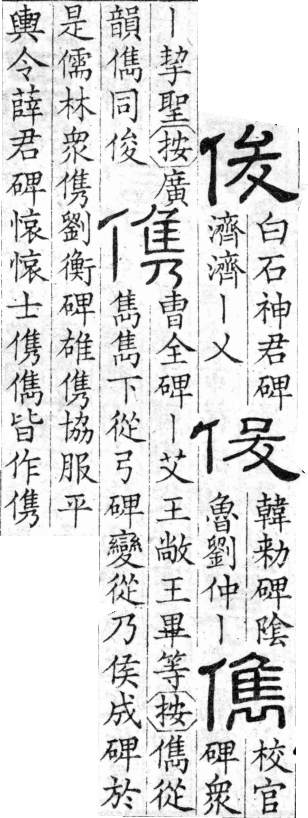 俊
白石神君碑
濟濟ー乂
俊
韓勑碑陰
魯劉仲ー
儁
校官
碑衆
ー挈聖按廣
韻儁同俊
㑺
曹全碑ー艾王敞王畢等按儁從
雋雋下從弓碑變從乃侯成碑於
是儒林衆㑺劉衡碑雄㑺協服平
輿令薛君碑懷懷士㑺儁皆作㑺